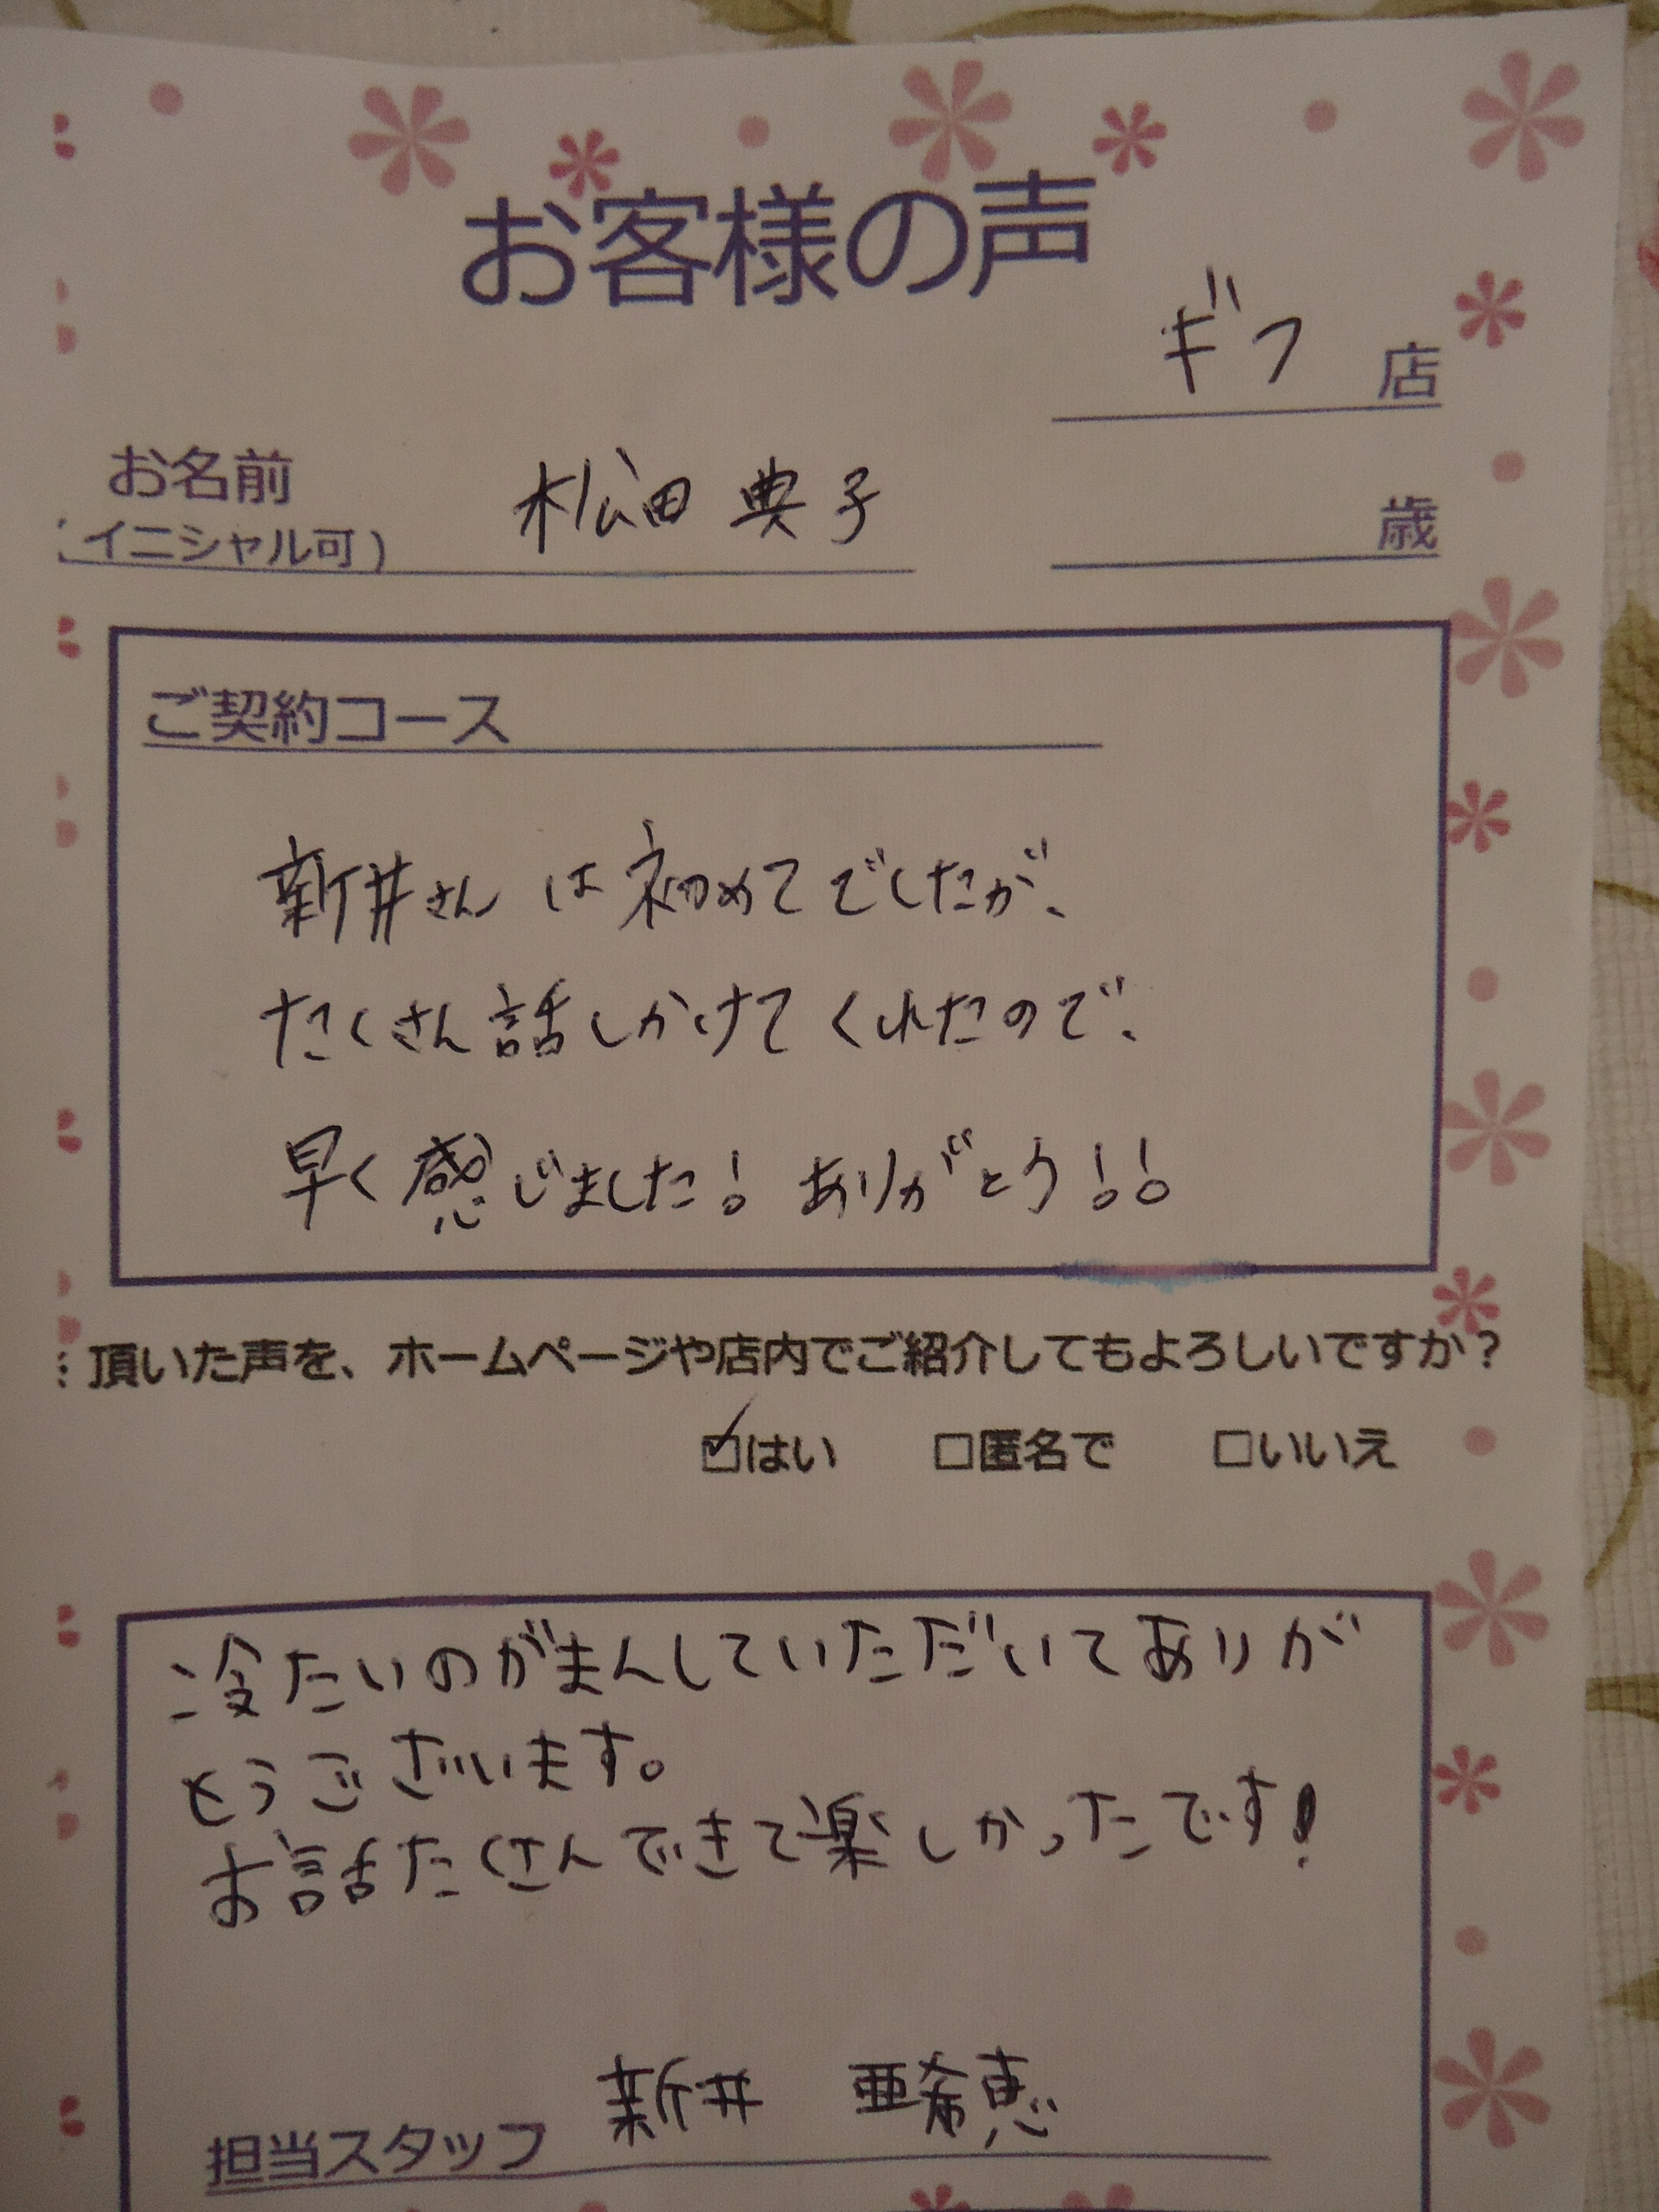 お客様の声
ギフ 店
お名前 松田 典子
(イニシャル可) 歳
ご契約コース
新井さん は初めてでしたが、
たくさん話しかけてくれたので、
早く感じました! ありがとう!!
頂いた声を、ホームページや店内でご紹介してもよろしいですか?
☑はい □匿名で □いいえ
冷たいのがまんしていただいてありが
とうございます。
お話たくさんできて楽しかったです!
担当スタッフ 新井 亜希恵